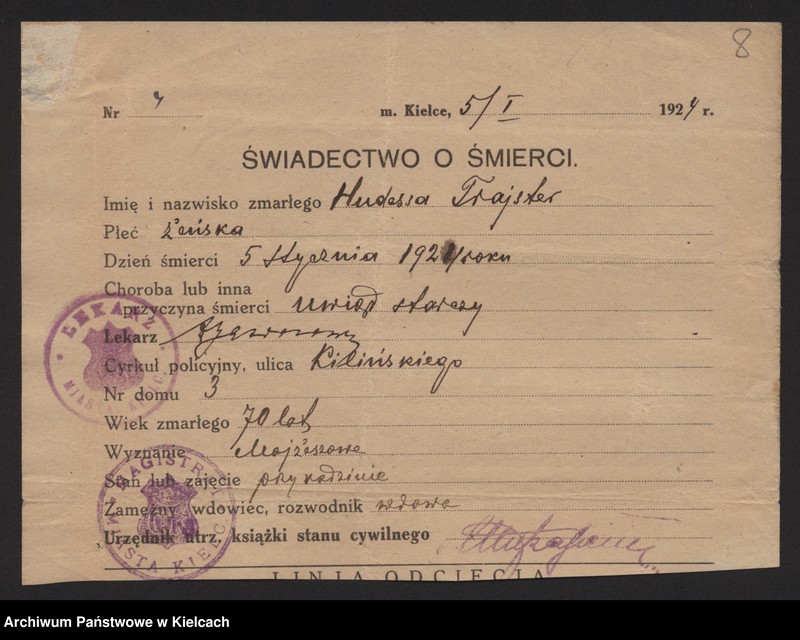 8
Nr 7 m. Kielce, 5/I 1924 r.
ŚWIADECTWO O ŚMIERCI.
Imię i nazwisko zmarłego Hudessa Trajster
Płeć żeńska
Dzień śmierci 5 stycznia 1924 roku
Choroba lub inna
przyczyna śmierci uwiąd starczy
Lekarz
Cyrkuł policyjny, ulica Kilińskiego
Nr domu 3
Wiek zmarłego 70 lat
Wyznanie Mojżeszowe
Stan lub zajęcie przy rodzinie
Zamężny, wdowiec, rozwodnik wdowa
Urzędnik utrz. książki stanu cywilnego
LINJA ODCIĘCIA
LEKARZ MIASTA KIELC
MAGISTRAT MIASTA KIELC
Archiwum Państwowe w Kielcach